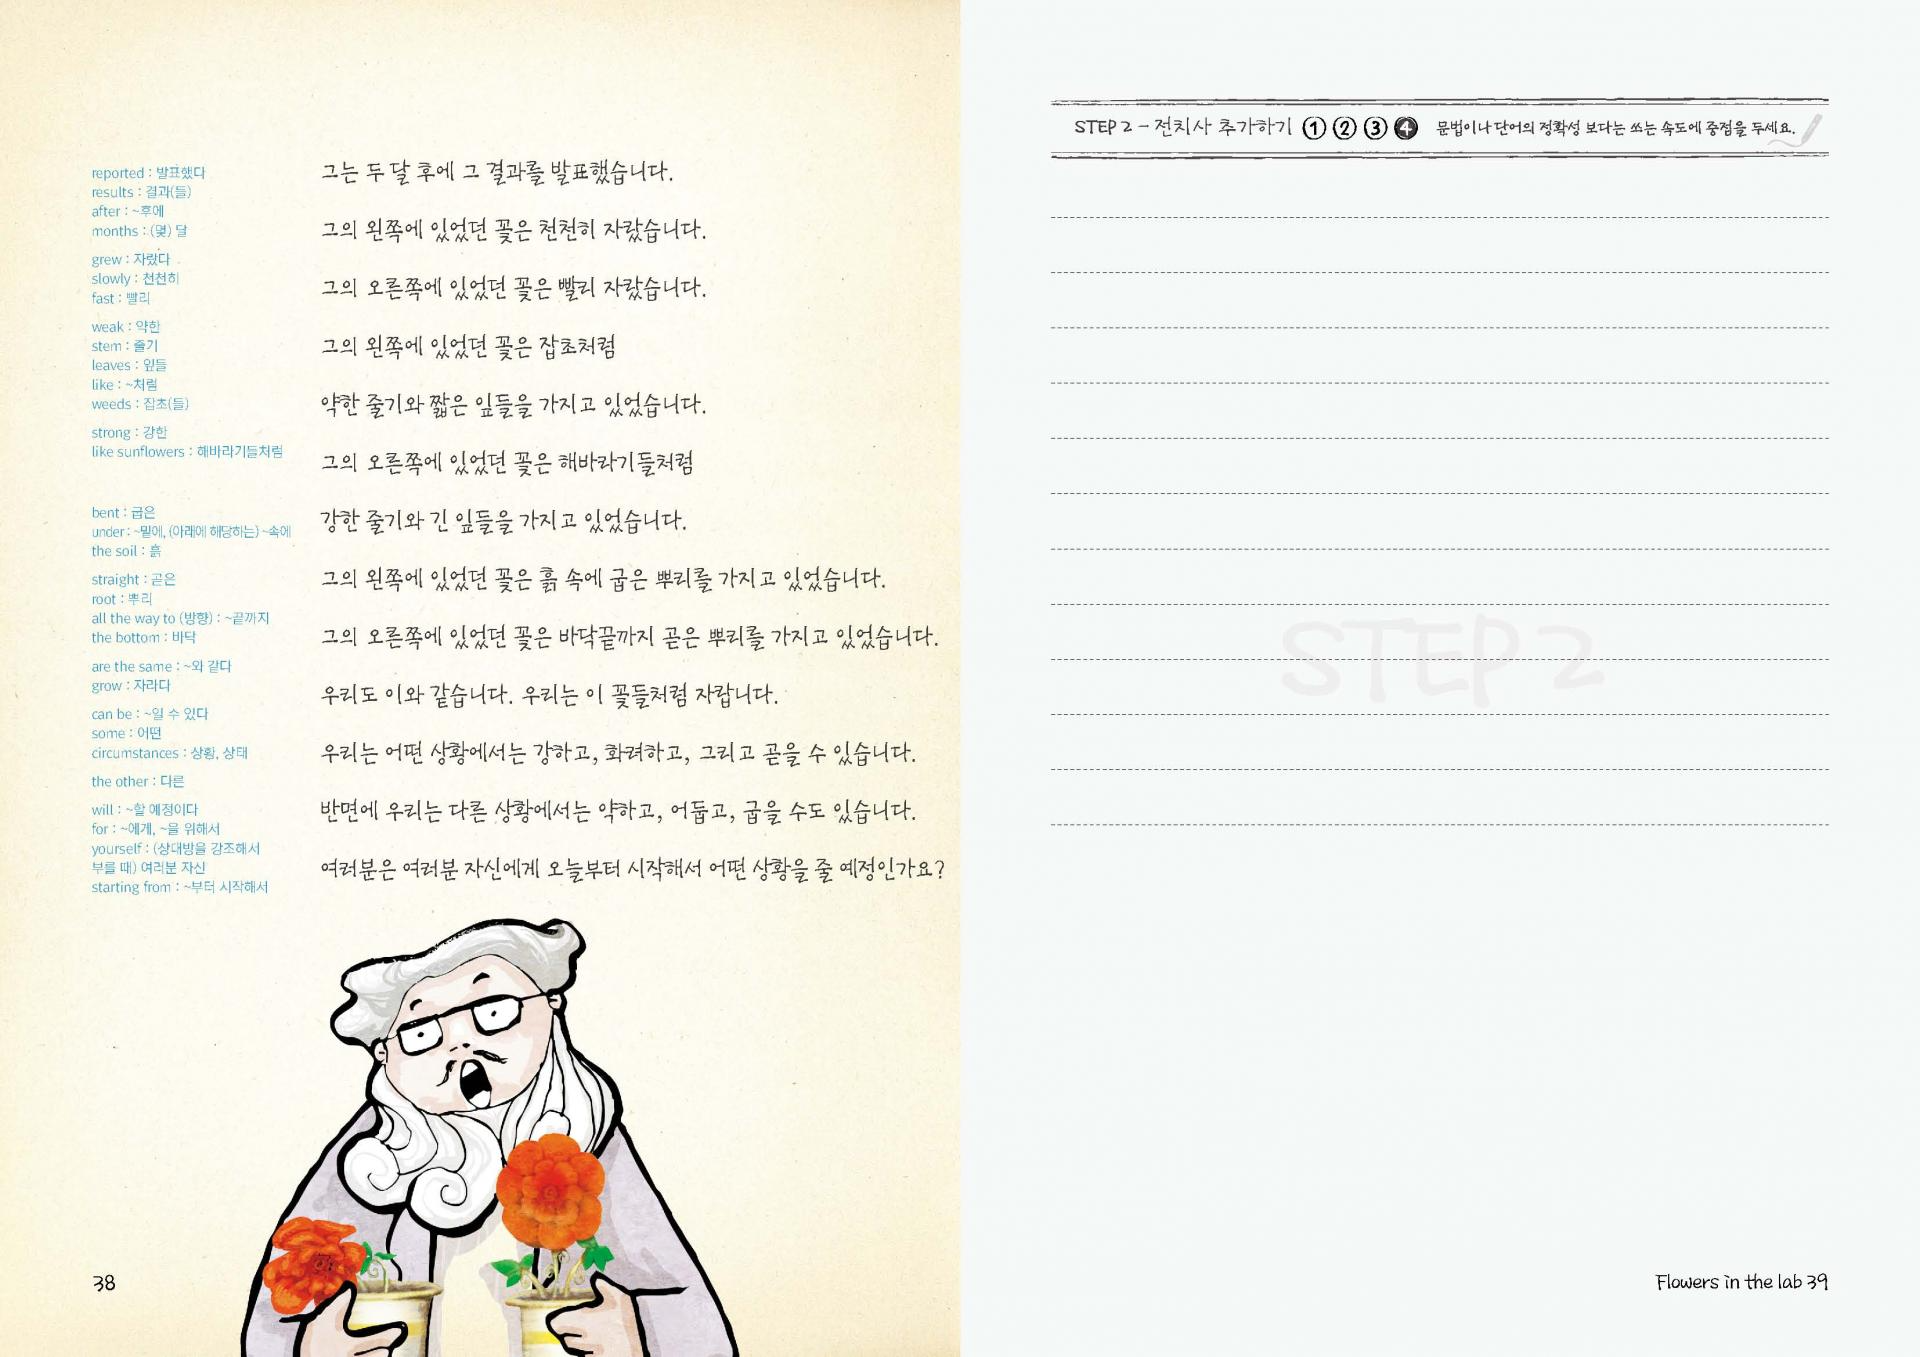 reported : 발표했다
results : 결과(들)
after : ~후에
months : (몇) 달
grew : 자랐다
slowly : 천천히
fast : 빨리
weak : 약한
stem : 줄기
leaves : 잎들
like : ~처럼
weeds : 잡초(들)
strong : 강한
like sunflowers : 해바라기들처럼
bent : 굽은
under : ~밑에, (아래에 해당하는) ~속에
the soil : 흙
straight : 곧은
root : 뿌리
all the way to (방향) : ~끝까지
the bottom : 바닥
are the same : ~와 같다
grow : 자라다
can be : ~일 수 있다
some : 어떤
circumstances : 상황, 상태
the other : 다른
will : ~할 예정이다
for : ~에게, ~을 위해서
yourself : (상대방을 강조해서
부를 때) 여러분 자신
starting from : ~부터 시작해서
그는 두 달 후에 그 결과를 발표했습니다.
그의 왼쪽에 있었던 꽃은 천천히 자랐습니다.
그의 오른쪽에 있었던 꽃은 빨리 자랐습니다.
그의 왼쪽에 있었던 꽃은 잡초처럼
약한 줄기와 짧은 잎들을 가지고 있었습니다.
그의 오른쪽에 있었던 꽃은 해바라기들처럼
강한 줄기와 긴 잎들을 가지고 있었습니다.
그의 왼쪽에 있었던 꽃은 흙 속에 굽은 뿌리를 가지고 있었습니다.
그의 오른쪽에 있었던 꽃은 바닥끝까지 곧은 뿌리를 가지고 있었습니다.
우리도 이와 같습니다. 우리는 이 꽃들처럼 자랍니다.
우리는 어떤 상황에서는 강하고, 화려하고, 그리고 곧을 수 있습니다.
반면에 우리는 다른 상황에서는 약하고, 어둡고, 굽을 수도 있습니다.
여러분은 여러분 자신에게 오늘부터 시작해서 어떤 상황을 줄 예정인가요?
38
STEP 2 - 전치사 추가하기 ① ② ③ ❹ 문법이나 단어의 정확성 보다는 쓰는 속도에 중점을 두세요.
STEP 2
Flowers in the lab 39